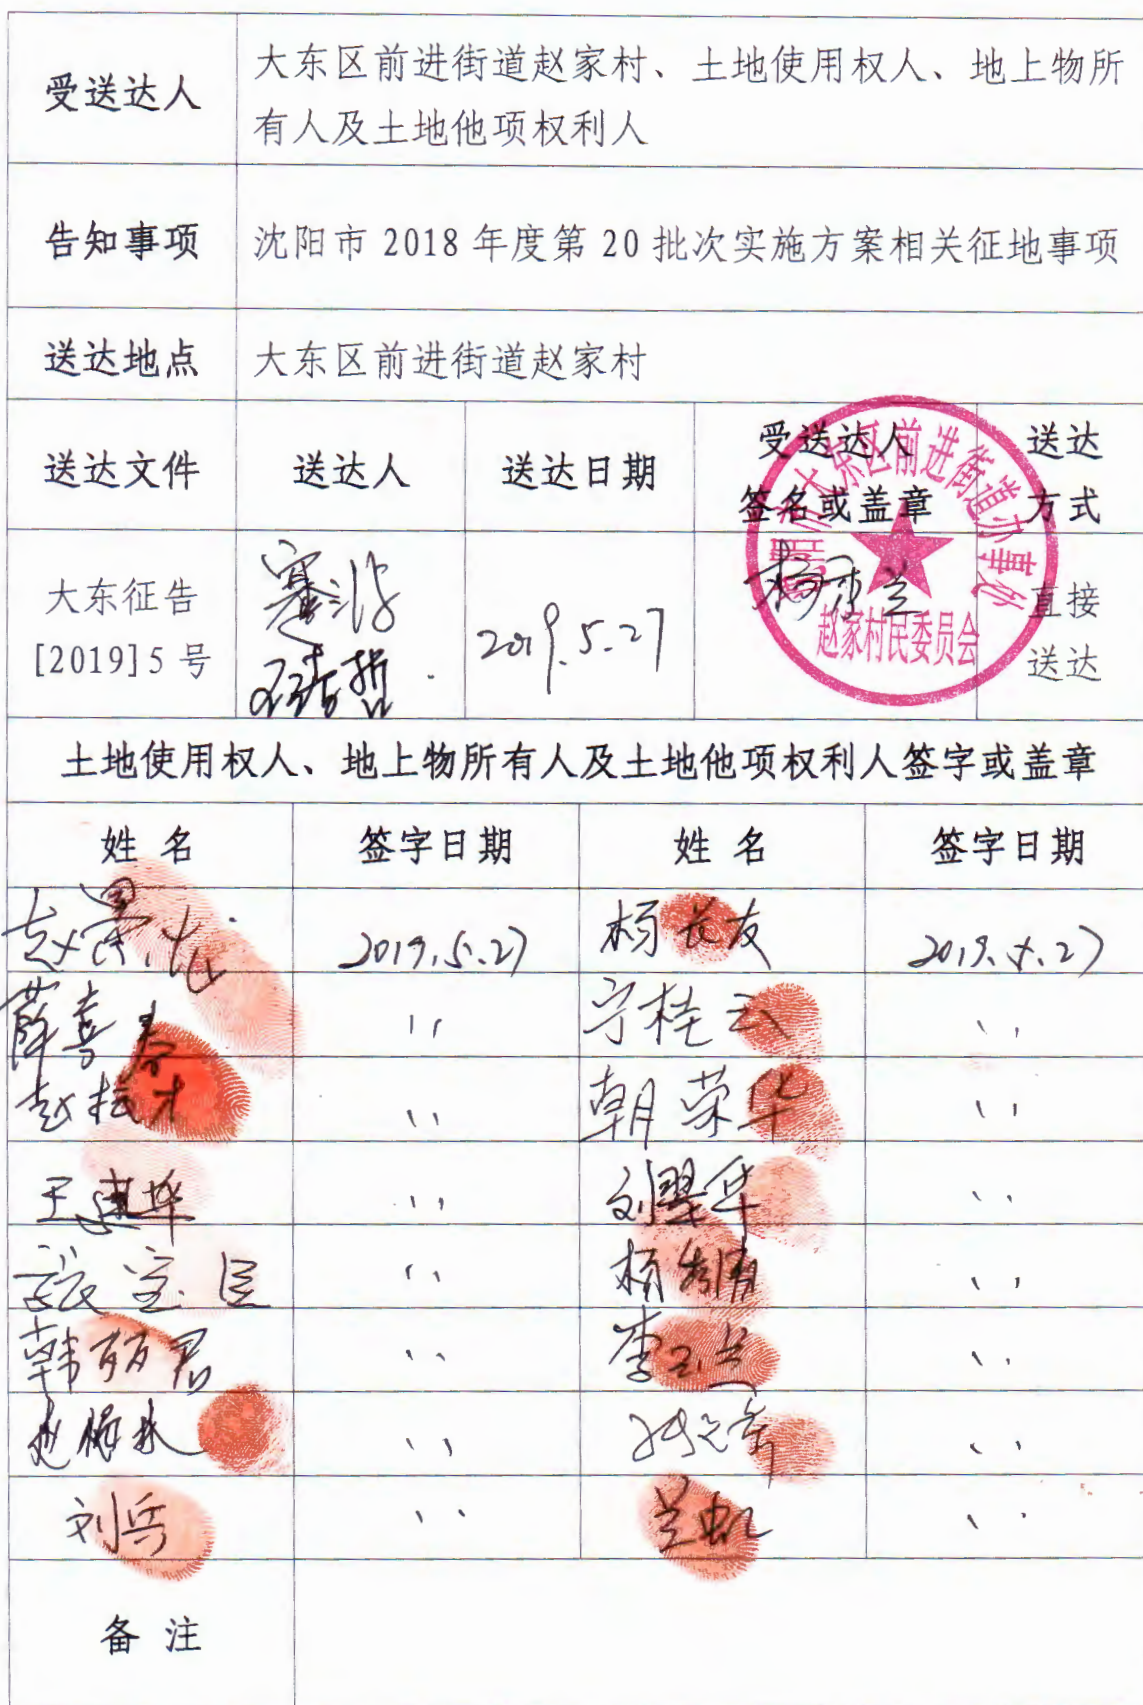 受送达人
大东区前进街道赵家村、土地使用权人、地上物所
有人及土地他项权利人
告知事项
沈阳市 2018 年度第 20 批次实施方案相关征地事项
送达地点
大东区前进街道赵家村
送达文件
送达人
送达日期
受送达人
签名或盖章
送达
方式
大东征告
[2019]5 号
2019.5.27
沈阳市大东区前进街道办事处
赵家村民委员会
直接
送达
土地使用权人、地上物所有人及土地他项权利人签字或盖章
姓 名
签字日期
姓 名
签字日期
2019.5.27
杨长友
2019.5.27
薛喜春
〃
宁桂云
〃
赵振才
〃
朝荣华
〃
王建华
〃
刘翠华
〃
张宝臣
〃
〃
韩丽君
〃
李玉兰
〃
〃
〃
刘兵
〃
兰虹
〃
备 注